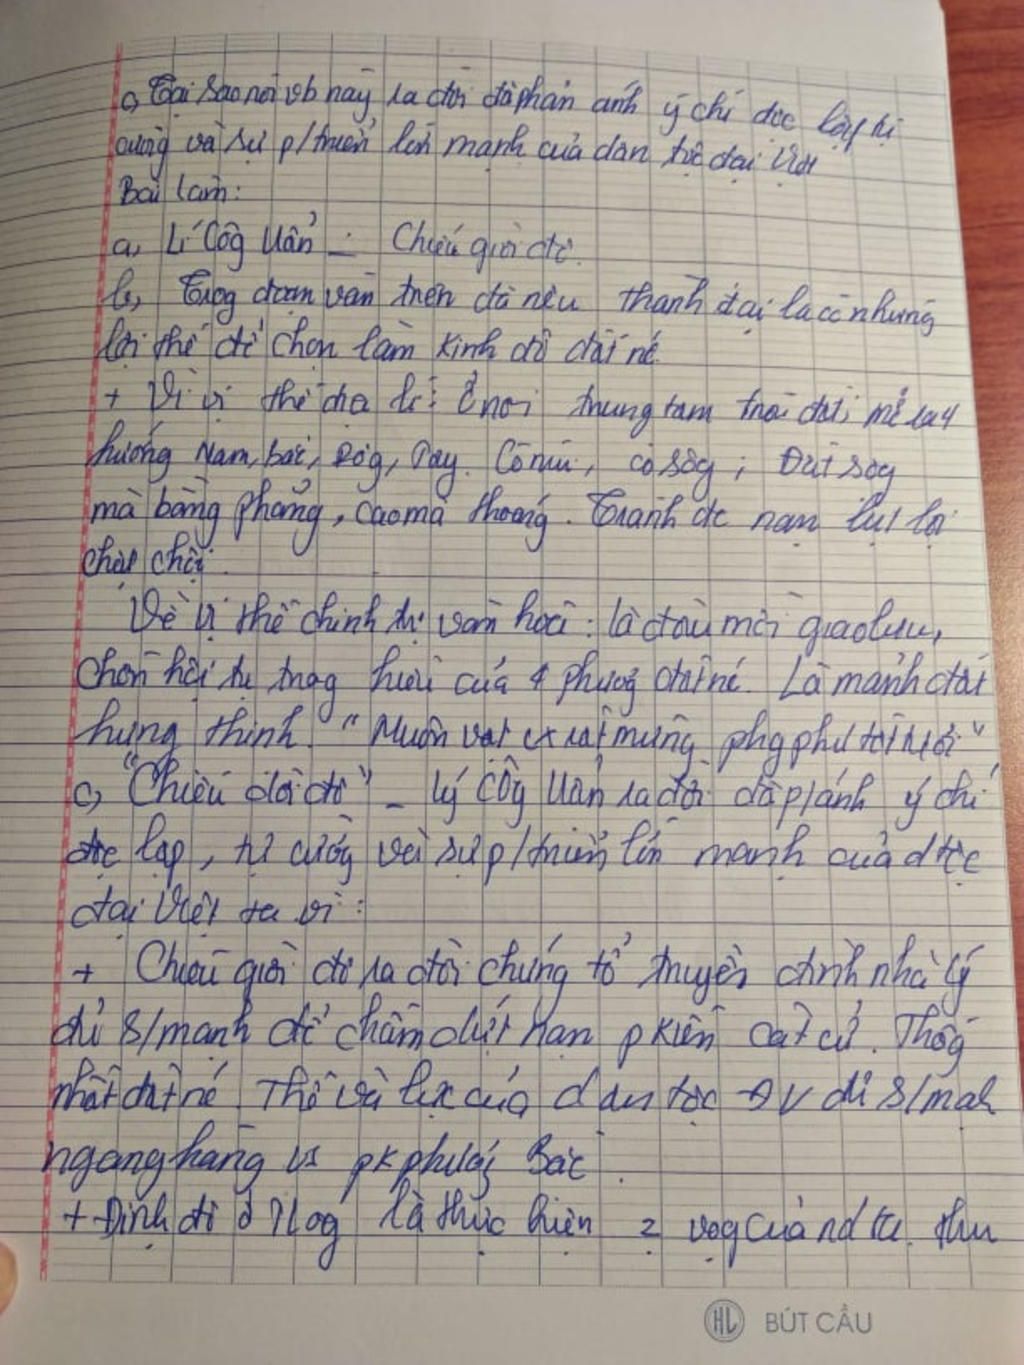 c, Tại sao nói vb này ra đời đã phản ánh ý chí độc lập tự
cường và sự p/triển lớn mạnh của dân tộc đại Việt
Bài làm:
a, Lí Côg Uẩn - Chiếu giời đô.
b, Trog đoạn văn trên đã nêu thành đại la có những
lợi thế để chọn làm kinh đô đất nc
+ Về vị thế địa lí: Ở nơi trung tâm trời đất, mở ra 4
hướng Nam, bắc, Đôg, Tây. Có núi, có sôg; Đất rộg
mà bằng phẳng, cao mà thoáng. Tránh đc nạn lụt lội
chật chội.
Về vị thế chính trị văn hoá: là đầu mối giao lưu,
chốn hội tụ trọg của 4 phươg đất nc. Là mảnh đất
hưng thịnh. "Muôn vật rất mựng phg phú tốt tươi"
c, "Chiếu dời đô" - Lý Côg Uẩn ra đời đã p/ánh ý chí
độc lập, tự cườg và sự p/triển lớn mạnh của d tộc
đại Việt ta vì:
+ Chiếu giời đô ra đời chứng tỏ triều đình nhà Lý
đủ s/mạnh để chấm dứt nạn p kiến cát cứ. Thốg
nhất đất nc. Thế và lực của dân tộc ĐV đủ s/mạh
ngang hàng vs pk phươg Bắc.
+ Định đô ở TLog là thực hiện vọg của nd ta. thu
HL BÚT CẦU